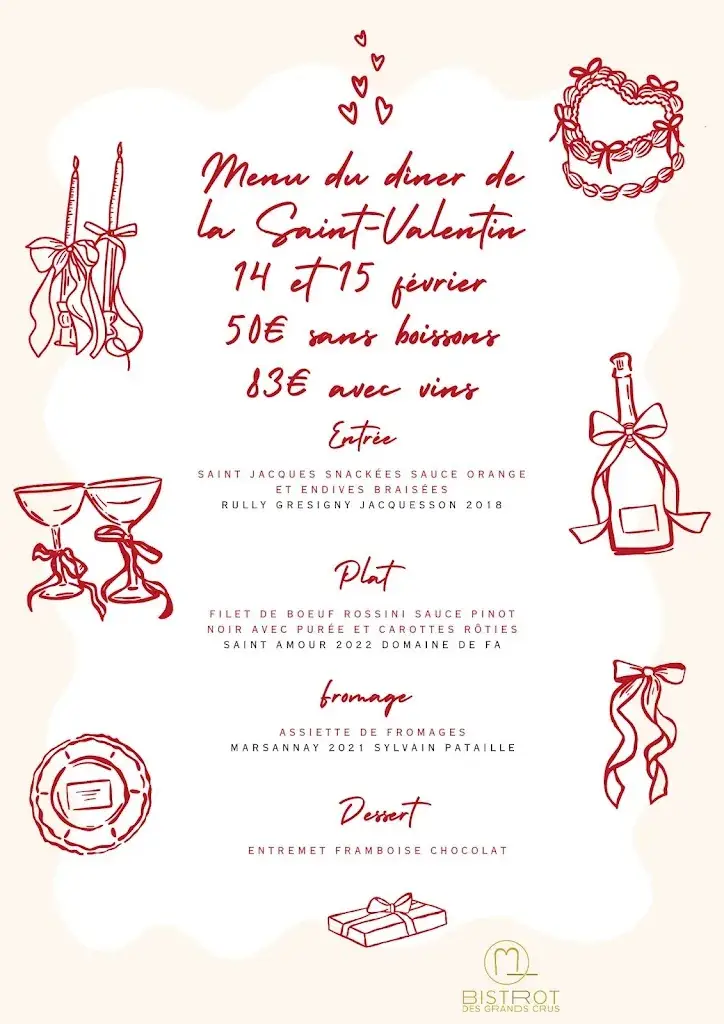 Menu du dîner de
la Saint-Valentin
14 et 15 février
50€ sans boissons
83€ avec vins
Entrée
SAINT JACQUES SNACKÉES SAUCE ORANGE
ET ENDIVES BRAISÉES
RULLY GRESIGNY JACQUESSON 2018
Plat
FILET DE BOEUF ROSSINI SAUCE PINOT
NOIR AVEC PURÉE ET CAROTTES RÔTIES
SAINT AMOUR 2022 DOMAINE DE FA
fromage
ASSIETTE DE FROMAGES
MARSANNAY 2021 SYLVAIN PATAILLE
Dessert
ENTREMET FRAMBOISE CHOCOLAT
BISTROT
DES GRANDS CRUS